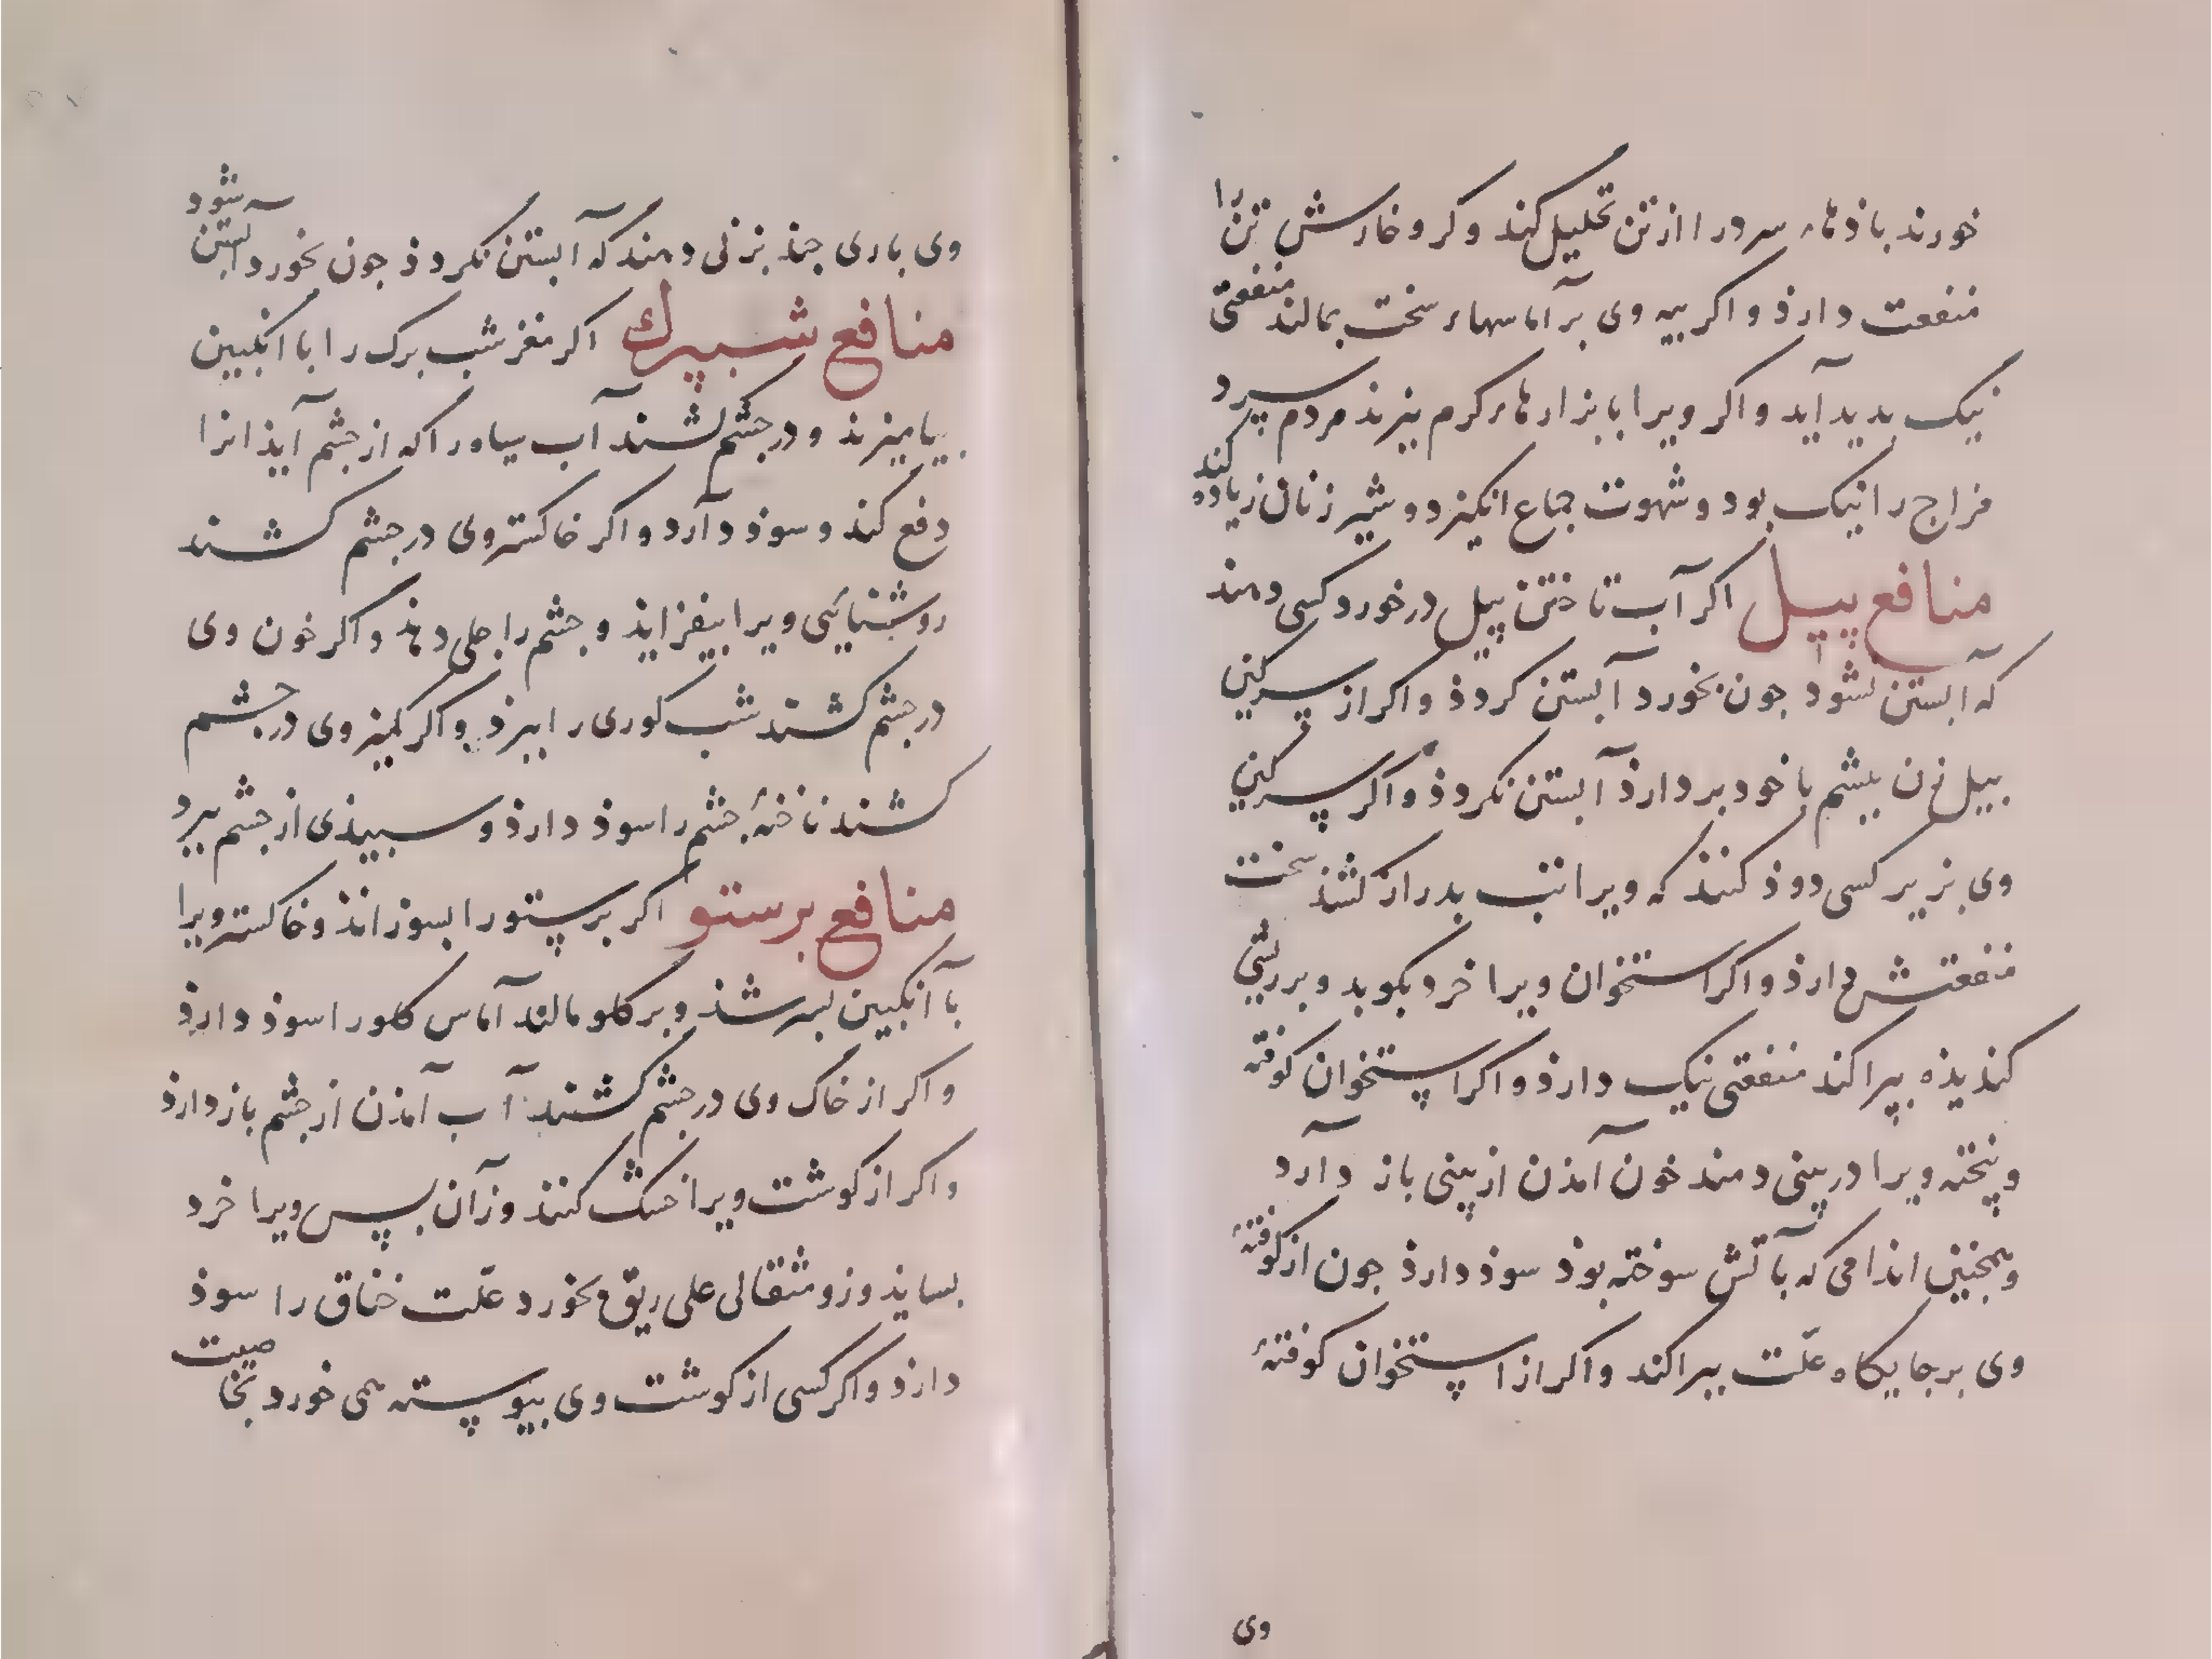 خورند باذهاء سرد را از تن تحلیل کند و کر و خارش تن را
منفعت دارذ و اکر پیه وی بر آماسهاء سخت بمالند منفعتی
نیک بدید آید و اکر ویرا بابزارهاء کرم بپزند مردم سرد
مزاج را نیک بود و شهوت جماع انکیزد و شیر زنان زیاده کند
منافع پیل اکر آب تاختن پیل در خورد کسی دهند
که آبستن نشود جون بخورد آبستن کردذ و اکر از سرکین
بیل زن ببشم با خود بردارذ آبستن نکردذ و اکر سرکین
وی بزیر کسی دوذ کنند که ویرا تب بدراز کشذ سخت
منفعتش دارذ و اکر استخوان ویرا خرد بکوبد و بر ریشی
کندیذه بپراکند منفعتی نیک دارذ و اکر استخوان کوفته
و پخته ویرا در بینی دمند خون آمذن از بینی باز دارد
و همجنین اندامی که بآتش سوخته بوذ سوذ دارذ جون از کوفتهٔ
وی بر جایکاه علّت ببراکند و اکر از استخوان کوفتهٔ
وی
وی باری جند بزنی دهند که آبستن نکردذ جون بخورد آبستن شود
منافع شبپرك اکر مغز شب برک را با انکبین
بیامیزند و در جشم کشند آب سیاه را که از جشم آیذ انرا
دفع کند و سوذ دارد و اکر خاکستر وی در جشم کشند
روشنایی ویرا بیفزایذ و جشم را جلی دهذ و اکر خون وی
در جشم کشند شب کوری را ببرذ و اکر کمیز وی در جشم
کشند ناخنهٔ جشم را سوذ دارذ و سبیذی از جشم ببرد
منافع برستو اکر برستو را بسوزانذ و خاکستر ویرا
با انکبین بسرشذ و بر کلو مالند آماس کلو را سوذ دارذ
و اکر از خاک وی در جشم کشند آب آمذن از جشم باز دارذ
و اکر از کوشت ویرا خشک کنند وزان بس ویرا خرد
بسایذ وزو مثقالی علی ریق بخورد علّت خناق را سوذ
دارذ و اکر کسی از کوشت وی بیوسته همی خورد بخاصیت